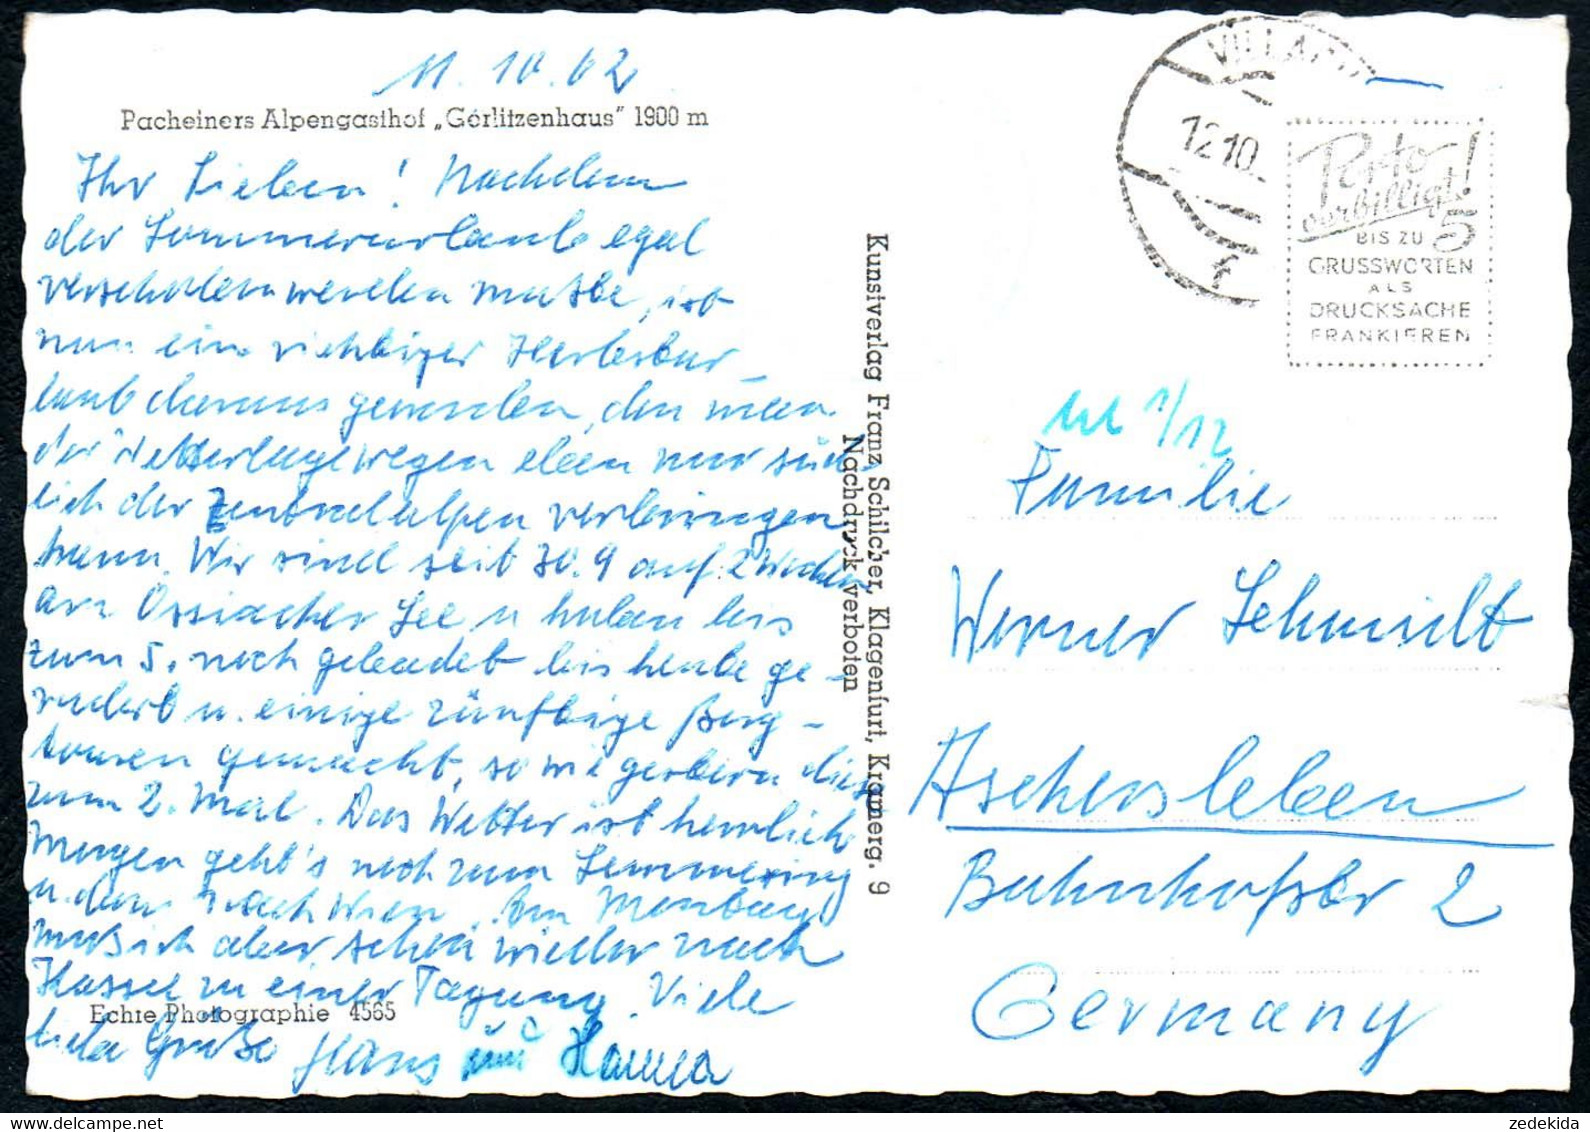 11.10.62
Pacheiners Alpengasthof „Görlitzenhaus" 1900 m
Ihr Lieben! Nachdem
der Sommerurlaub egal
verschoben werden mußte, ist
nun ein richtiger Herbstur-
laub daraus geworden, den man
der Wetterlage wegen eben nur süd-
lich der Zentralalpen verbringen
kann. Wir sind seit 30.9 auf 2 Wochen
am Ossiacher See u haben bis
zum 5. noch gebadet bis heute ge-
rudert u. einige zünftige Berg-
touren gemacht, so wie gestern die
zum 2. Mal. Das Wetter ist herrlich
Morgen geht's noch zum Semmering
u. dann nach Wien. Am Montag
muß ich aber schon wieder nach
Kassel zu einer Tagung. Viele
Echte Photographie 4565
liebe Grüße Hans und Hanna
Kunstverlag Franz Schilcher, Klagenfurt, Kramerg. 9
Nachdruck verboten
VILLACH
12.10.
Porto
verbilligt!
BIS ZU 5
GRUSSWORTEN
ALS
DRUCKSACHE
FRANKIEREN
1/12
Familie
Werner Schmidt
Aschersleben
Bahnhofstr 2
Germany
zedekida